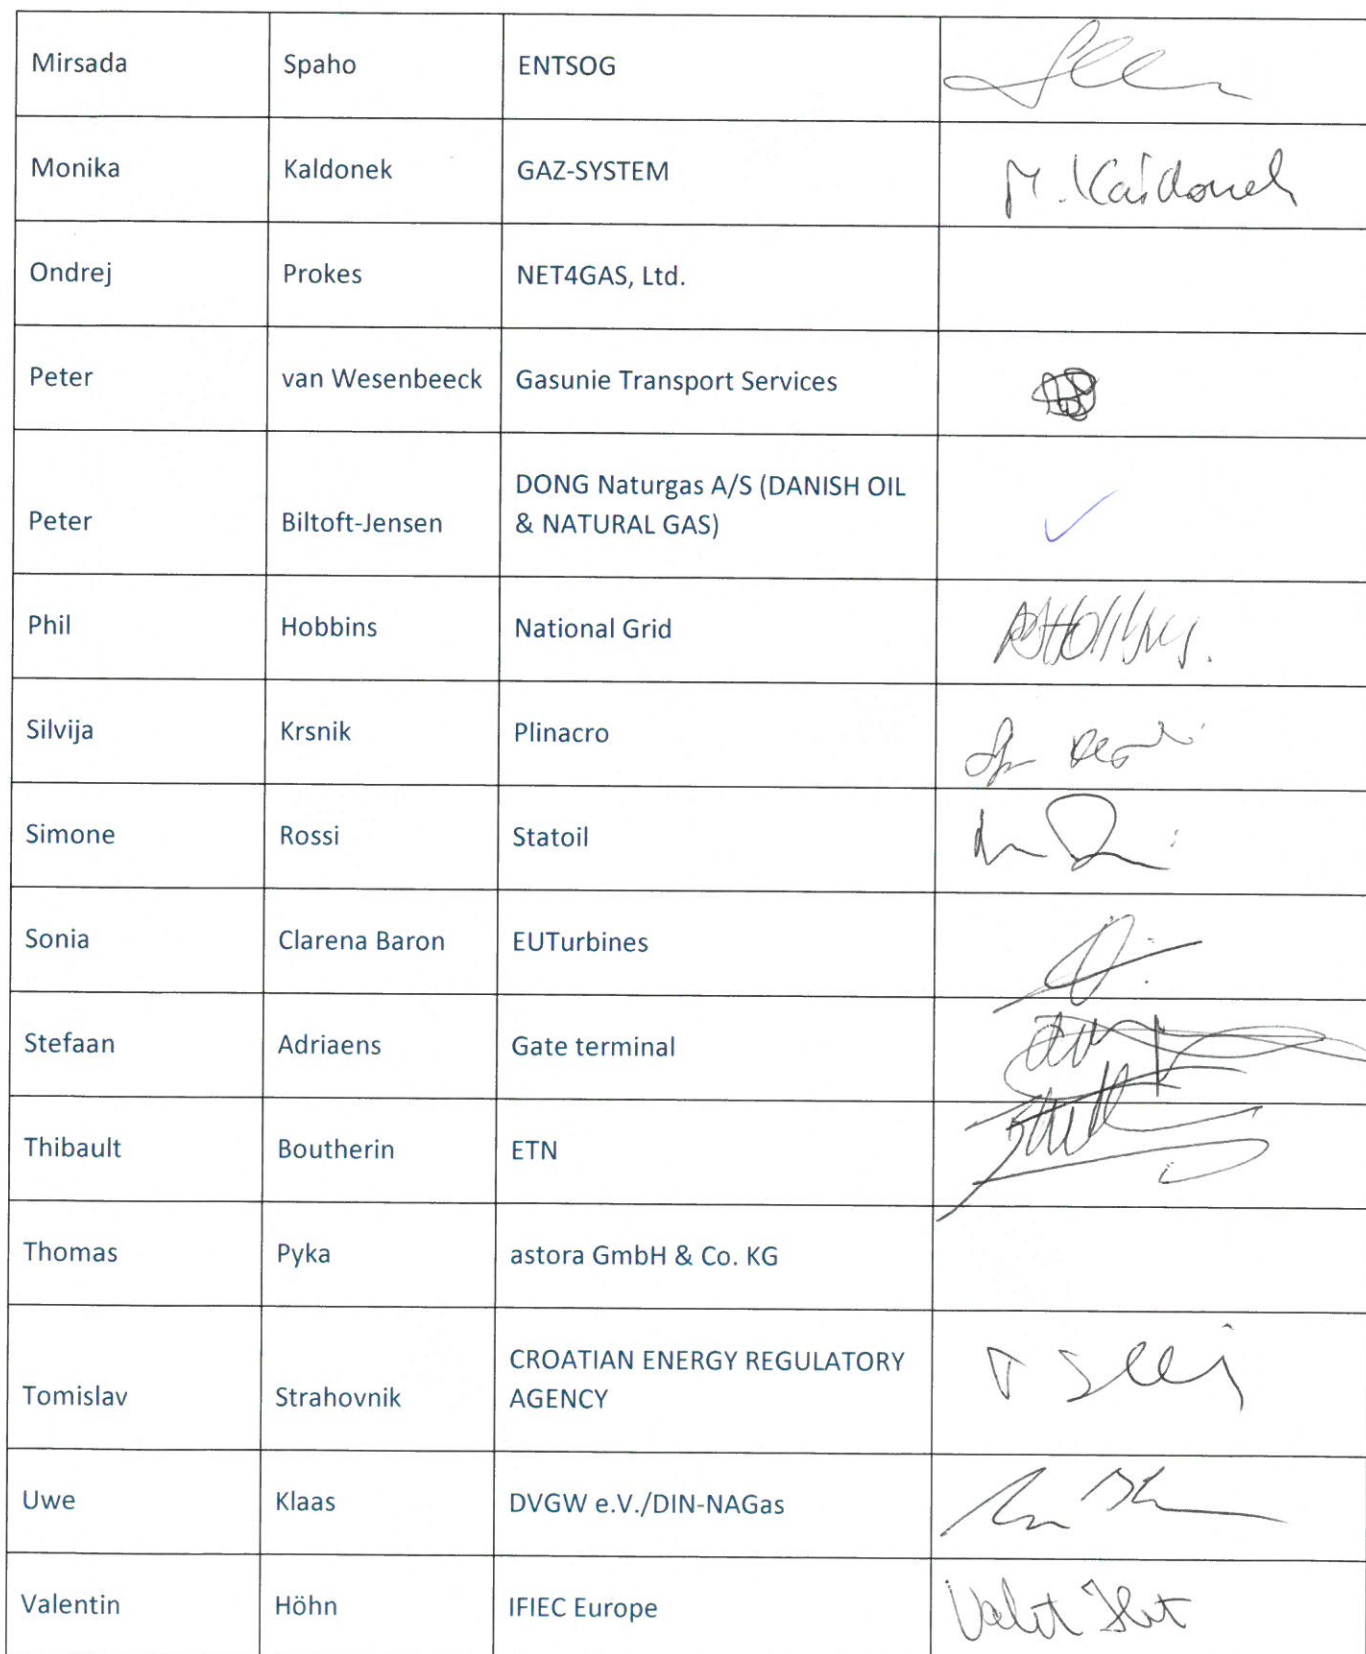 Mirsada Spaho ENTSOG
Monika Kaldonek GAZ-SYSTEM M. Kaldonek
Ondrej Prokes NET4GAS, Ltd.
Peter van Wesenbeeck Gasunie Transport Services
DONG Naturgas A/S (DANISH OIL
Peter Biltoft-Jensen & NATURAL GAS)
Phil Hobbins National Grid
Silvija Krsnik Plinacro
Simone Rossi Statoil
Sonia Clarena Baron EUTurbines
Stefaan Adriaens Gate terminal
Thibault Boutherin ETN
Thomas Pyka astora GmbH & Co. KG
CROATIAN ENERGY REGULATORY
Tomislav Strahovnik AGENCY
Uwe Klaas DVGW e.V./DIN-NAGas
Valentin Höhn IFIEC Europe